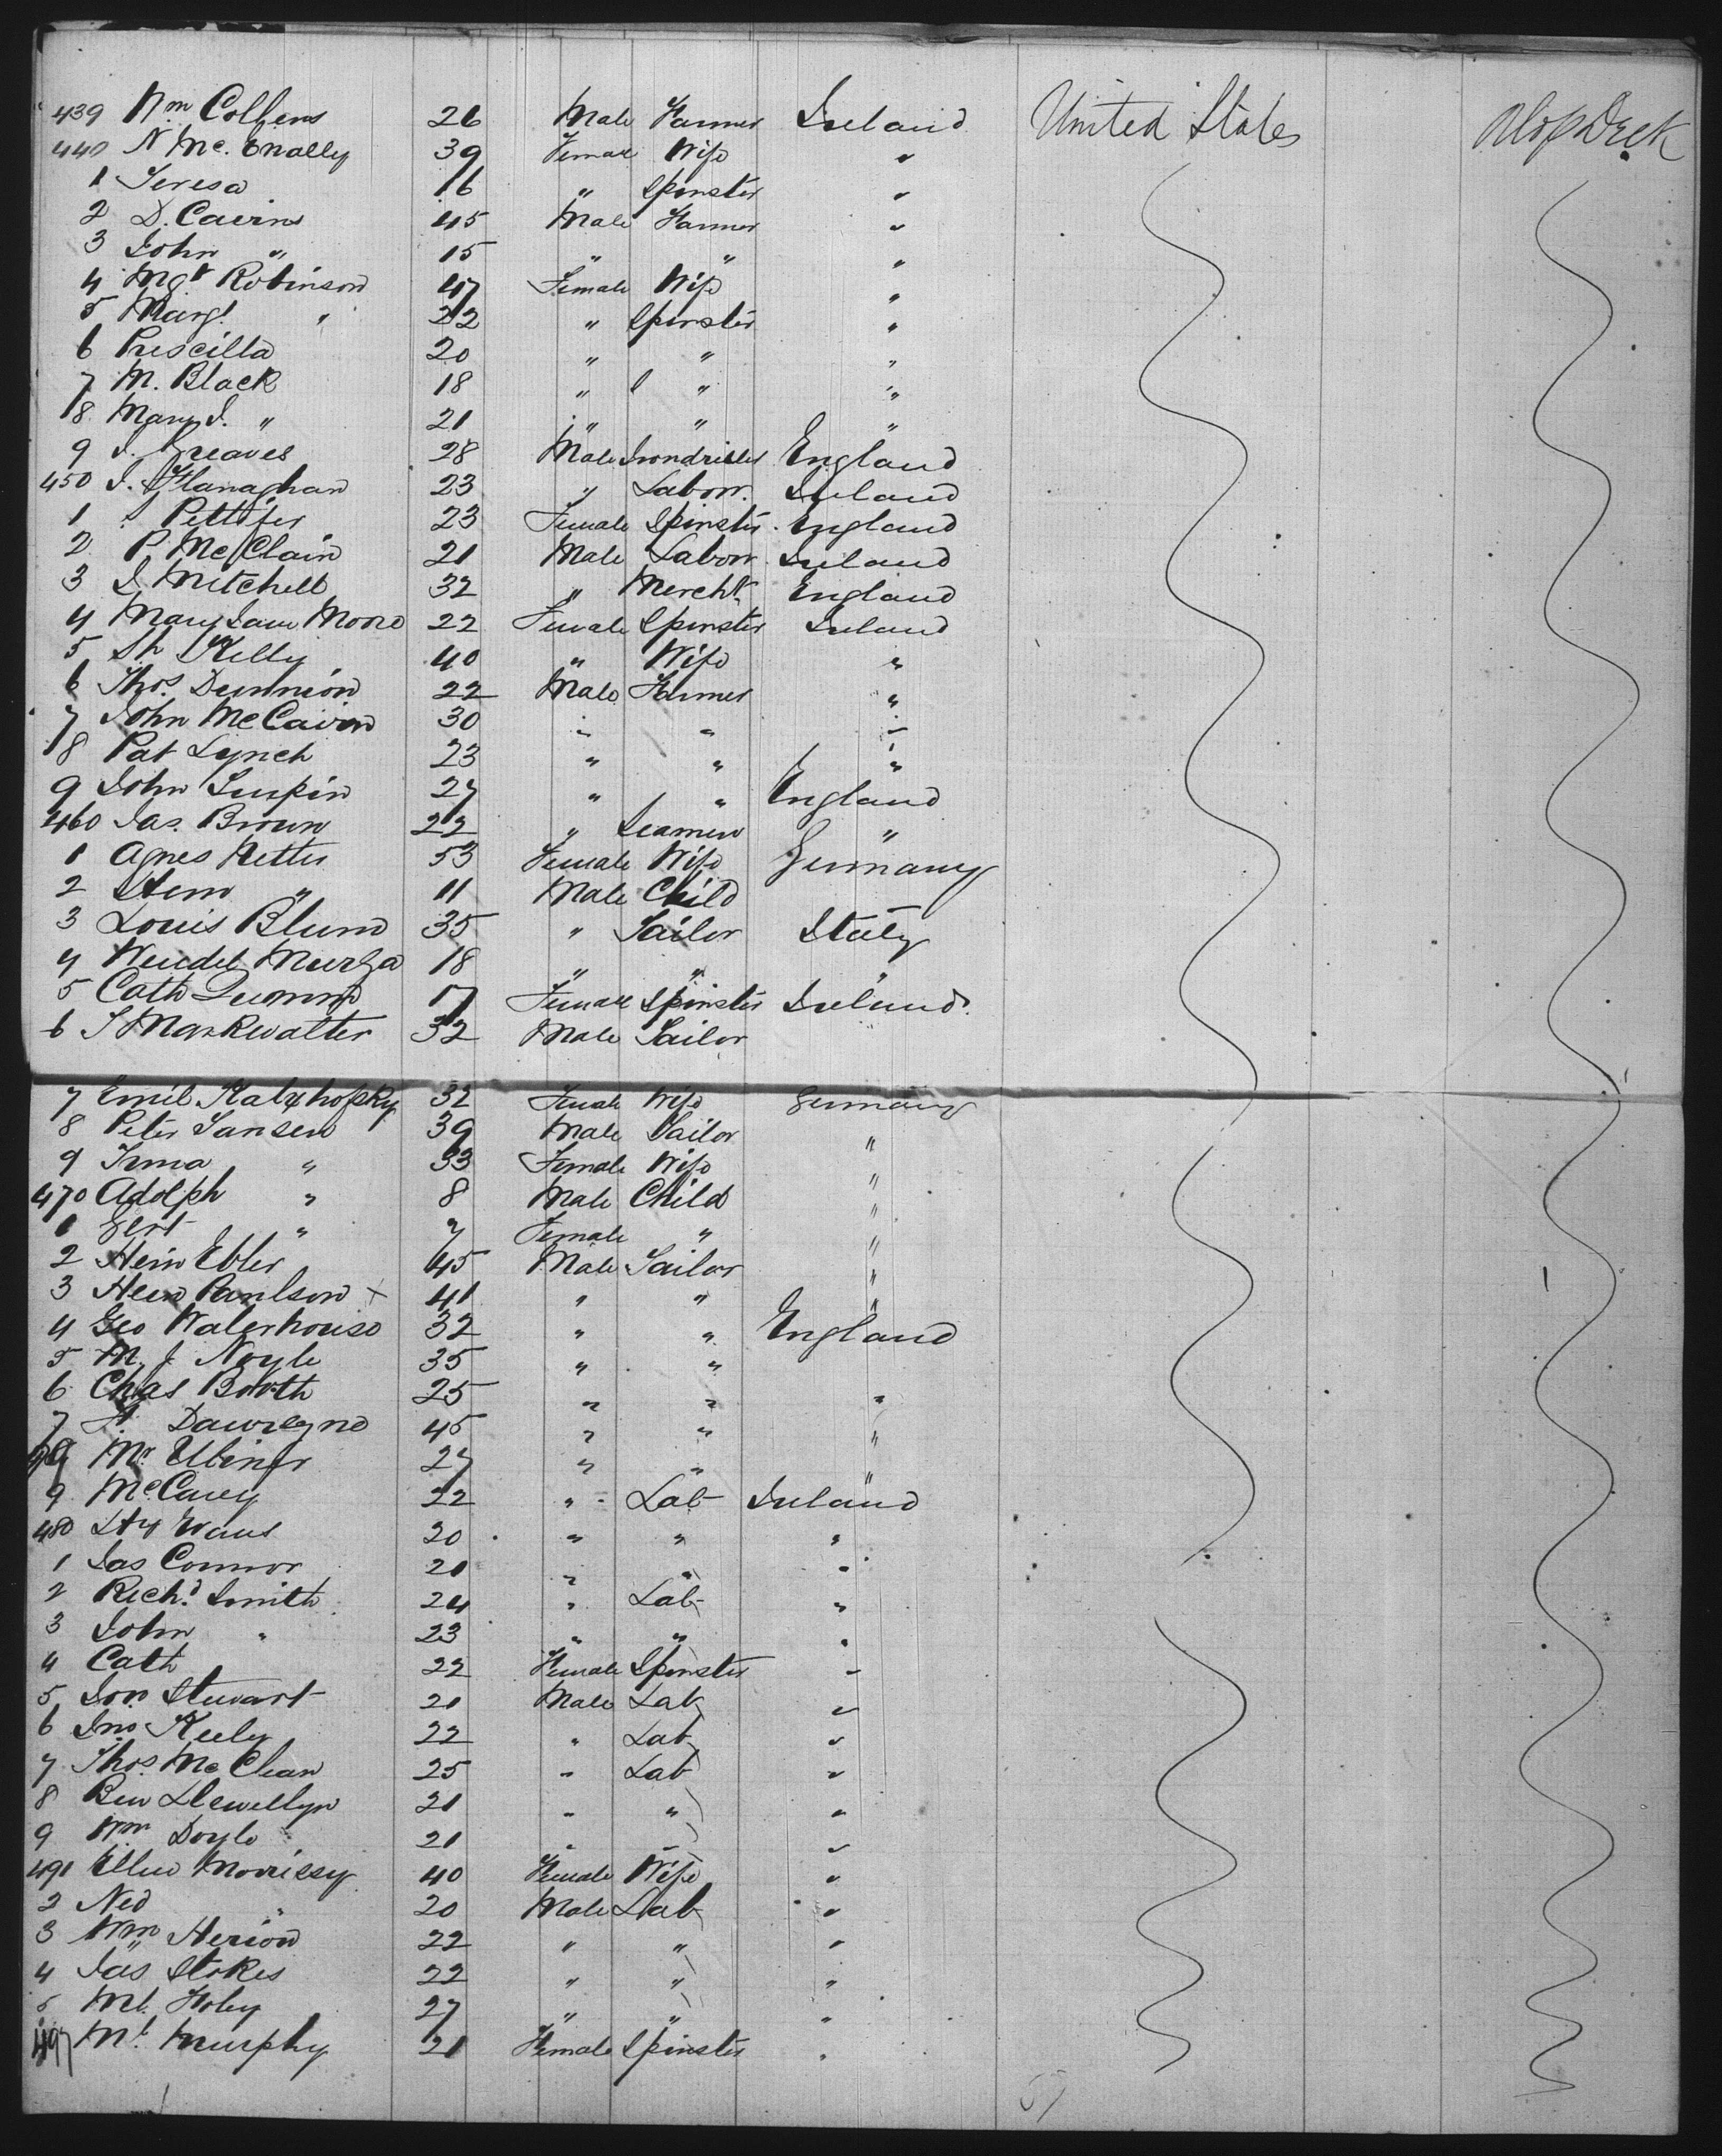 439 Wm Collens 26 Male Farmer Ireland United States Up Deck
440 N Mc. Enally 39 Female Wife "
1 Teresa 16 " Spinster "
2 D. Cairns 45 Male Farmer "
3 John " 15 " " "
4 Mgt Robinson 47 Female Wife "
5 Margt " 22 " Spinster "
6 Priscilla 20 " " "
7 M. Black 18 " " "
8 Mary J. " 21 " " "
9 J. Greaves 28 Male Irondriller England
450 J. Flanaghan 23 " Labour. Ireland
1 Pettifer 23 Female Spinster England
2 P. McClain 21 Male Labour Ireland
3 J Mitchell 32 " Mercht England
4 Mary Jane Moore 22 Female Spinster Ireland
5 Sh Kelly 40 " Wife "
6 Thos. Dunnion 22 Male Farmer "
7 John McCairn 30 " " "
8 Pat Lynch 23 " " "
9 John Turpin 27 " " England
460 Jas. Brown 22 " Seamen "
1 Agnes Retter 53 Female Wife Germany
2 Hem " 11 Male Child
3 Louis Blum 35 " Sailor Italy
4 Wendel Murza 18 " " "
5 Cath 17 Female Spinster Ireland
6 J Markwalter 32 Male Sailor
7 Emil 32 Female Wife Germany
8 Peter Jansen 39 Male Sailor "
9 Irma " 33 Female Wife "
470 Adolph " 8 Male Child "
1 Gert " 7 Female " "
2 Hein Ebler 45 Male Sailor "
3 Hein Paulson x 41 " " "
4 Geo Waterhouse 32 " " England
5 M. J. Noyle 35 " "
6 Chas Booth 25 " " "
7 45 " " "
8 Mr 27 " " "
9 McCarey 22 " Lab Ireland
480 20 " " "
1 Jas Connor 20 " " "
2 Richd Smith 24 " Lab "
3 John " 23 " " "
4 Cath 22 Female Spinster "
5 Jon Stewart 20 Male Lab "
6 Jno Keely 22 " Lab "
7 Thos. McClean 25 " Lab "
8 Ben Llewellyn 21 " " "
9 Wm Doyle 21 " " "
491 Ellen Morrissy 40 Female Wife "
2 Ned " 20 Male Lab "
3 Wm Herion 22 " " "
4 Jas Stokes 22 " " "
5 Ml. Foley 27 " " "
497 Mt. Murphy 21 Female Spinster "
57